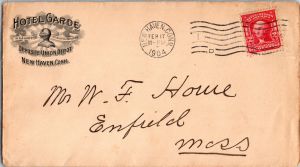 HOTEL GARDE
OPPOSITE UNION DEPOT
NEW HAVEN, CONN.
NEW HAVEN, CONN.
FEB 17
1904
Mr W. F. Howe
Enfield
Mass